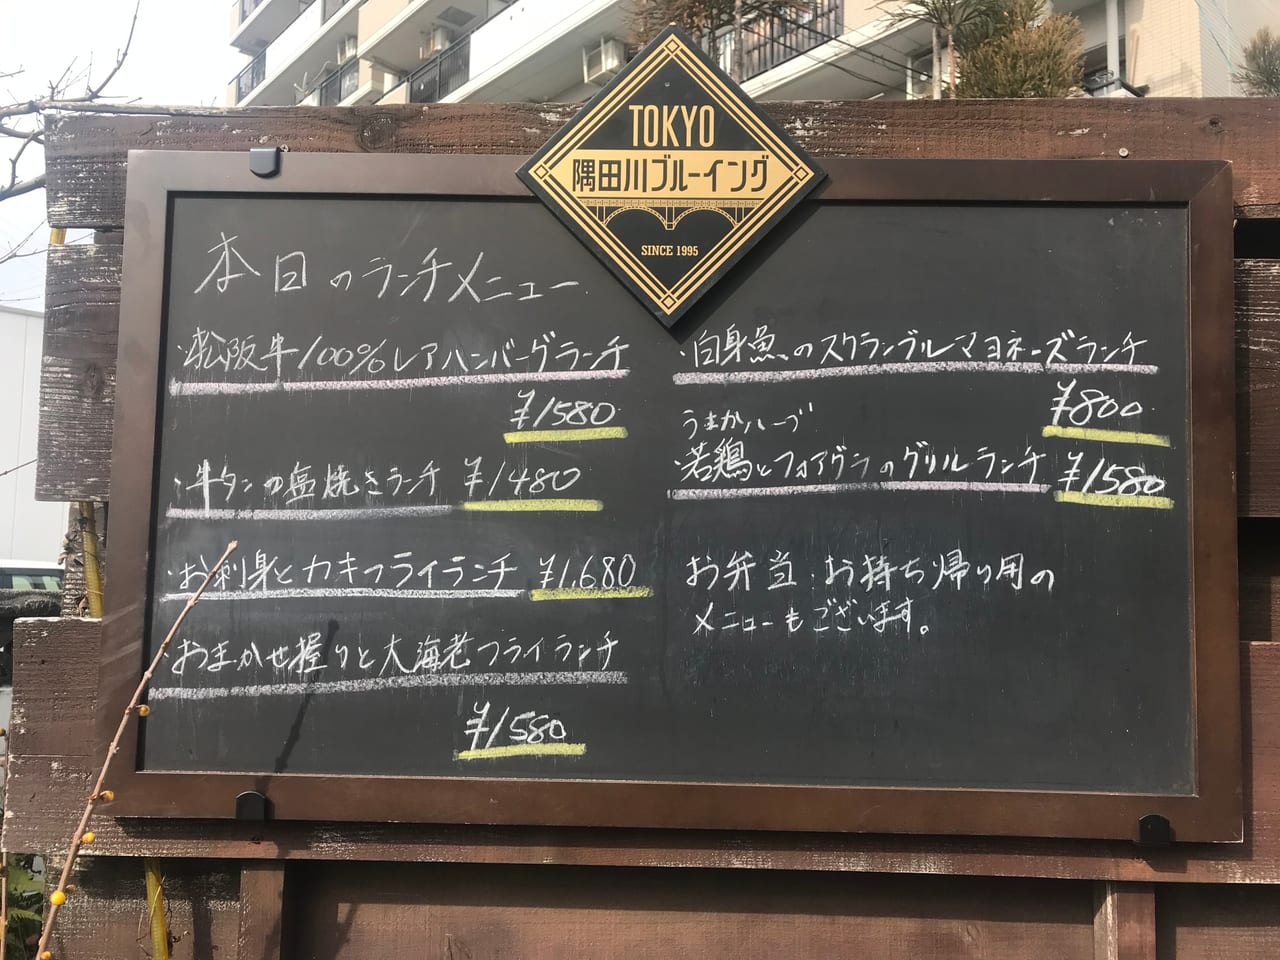 TOKYO
隅田川ブルーイング
SINCE 1995
本日のランチメニュー
・松阪牛100%レアハンバーグランチ
¥1580
・牛タンの塩焼きランチ ¥1480
・お刺身とカキフライランチ ¥1,680
・おまかせ握りと大海老フライランチ
¥1580
・白身魚のスクランブルマヨネーズランチ
¥800
うまかハーブ
・若鶏とフォアグラのグリルランチ ¥1580
お弁当、お持ち帰り用の
メニューもございます。